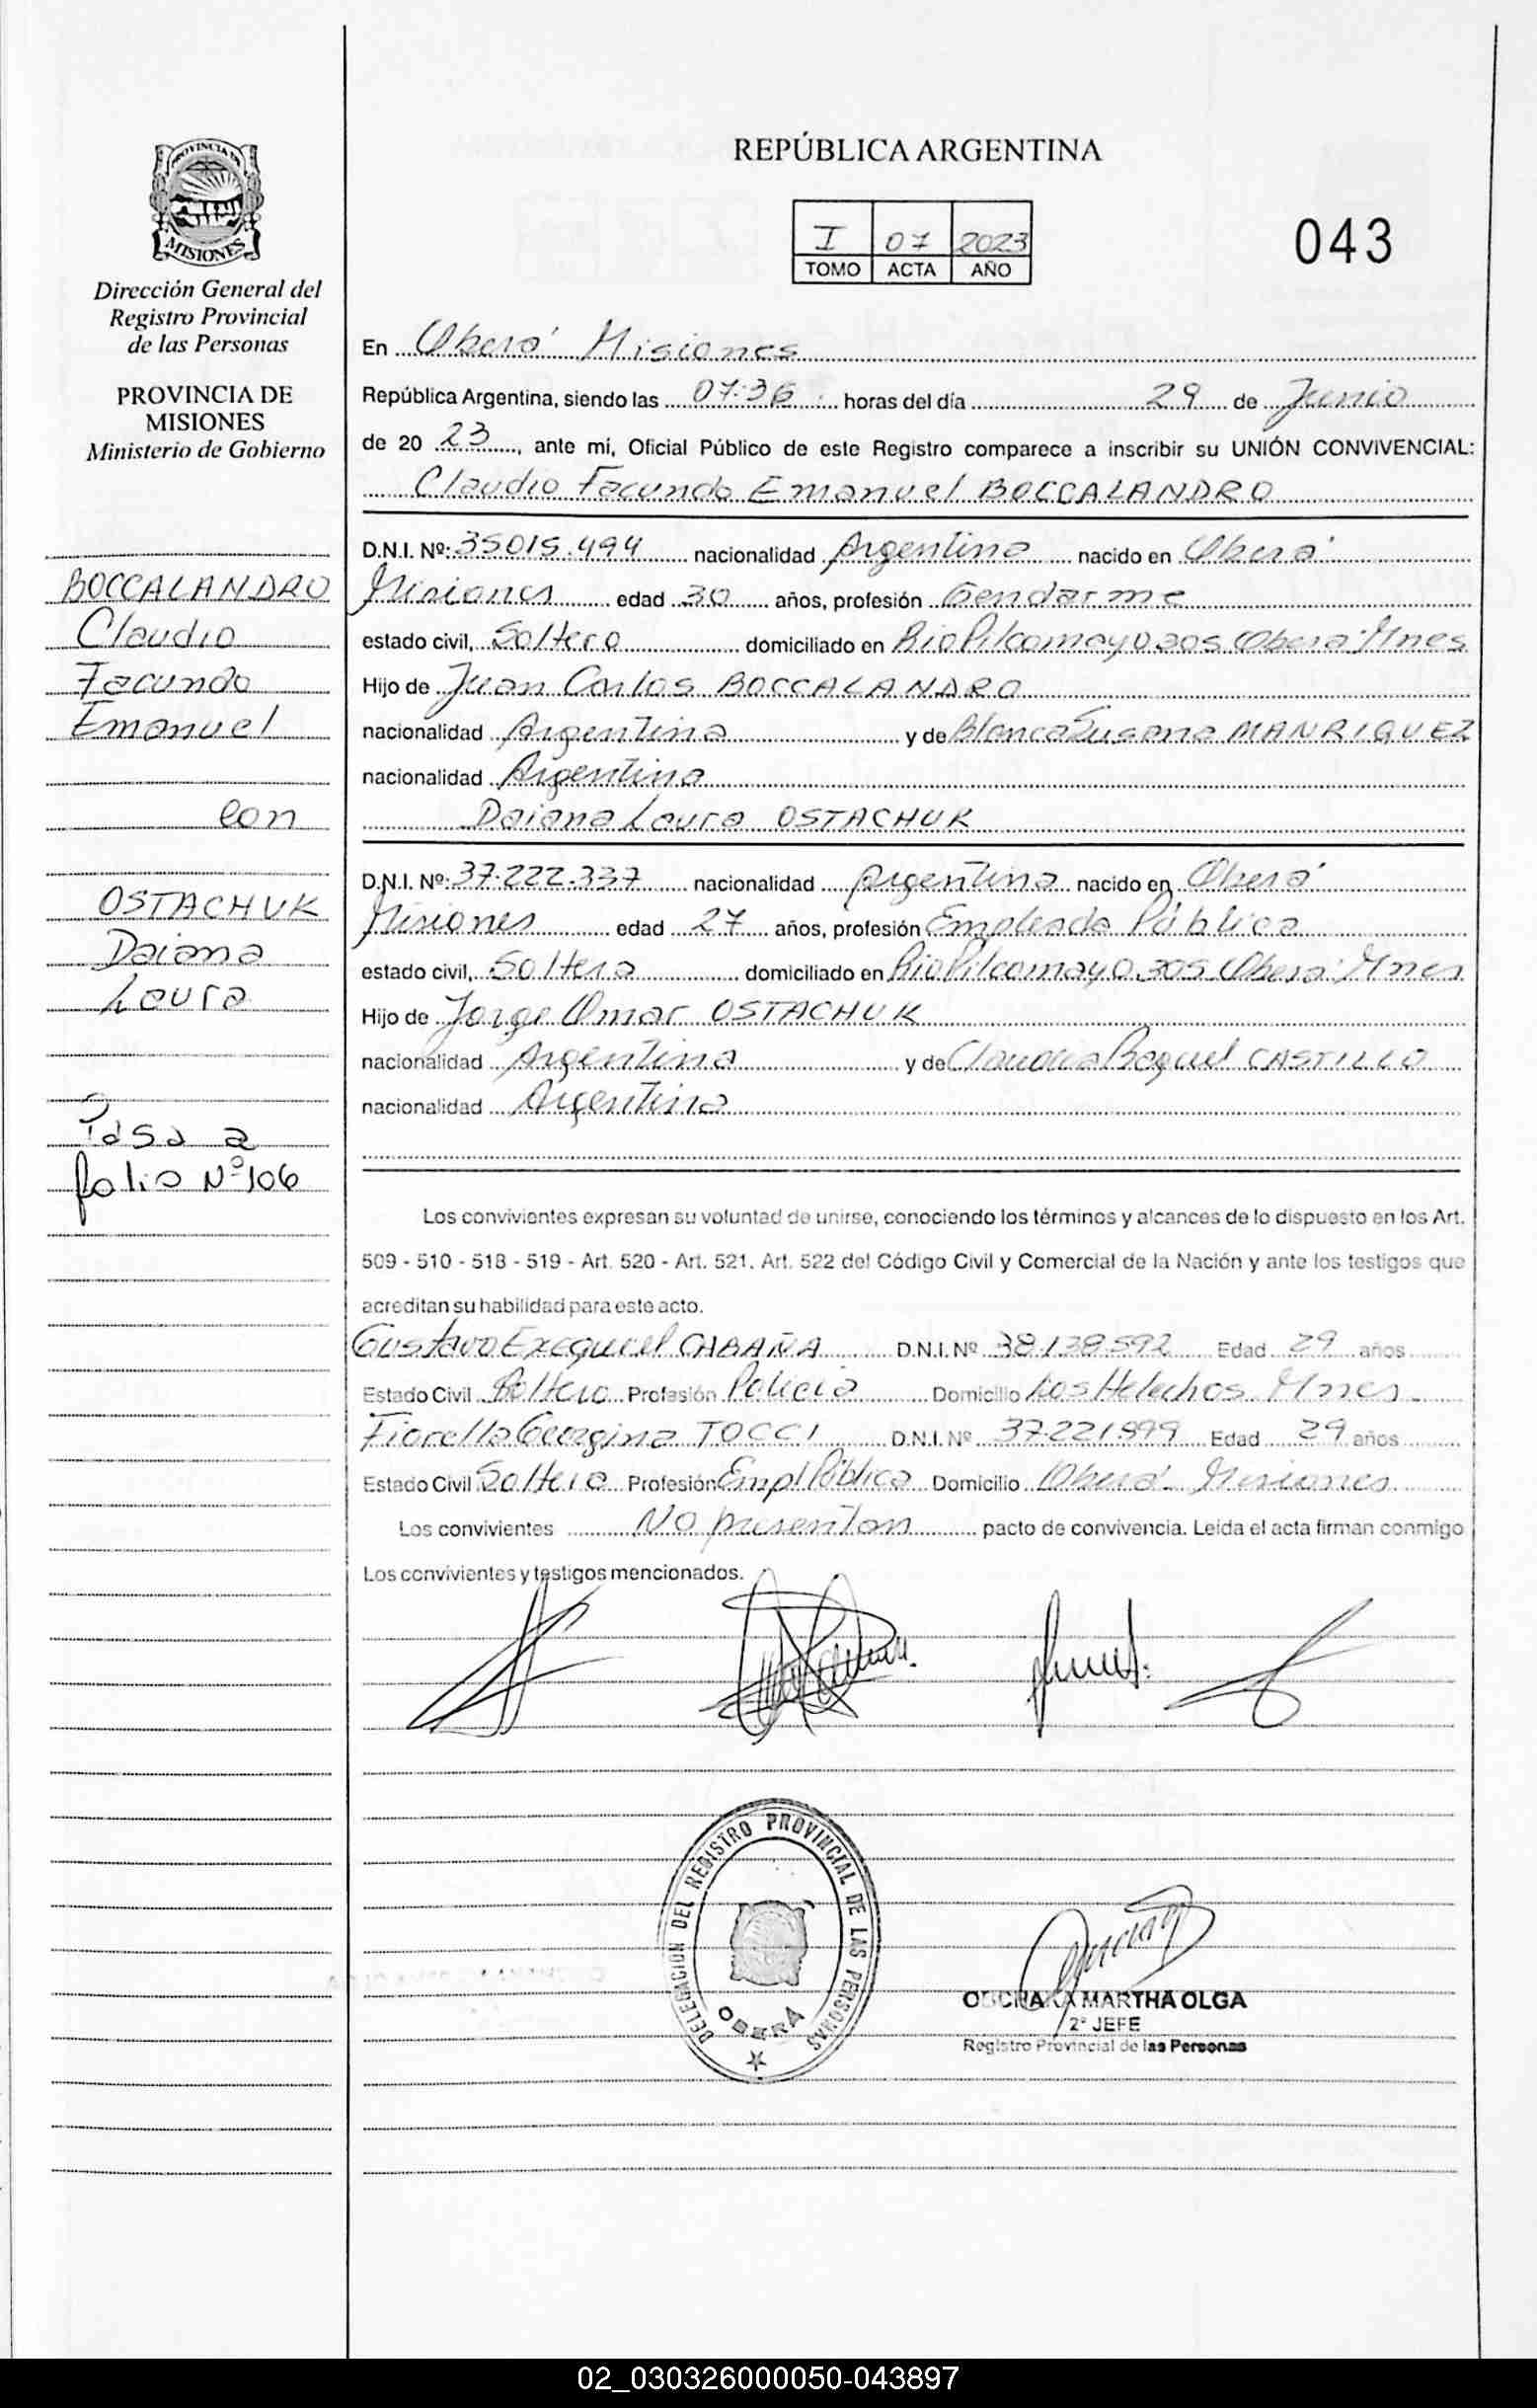 PROVINCIA DE
MISIONES
Dirección General del
Registro Provincial
de las Personas
PROVINCIA DE
MISIONES
Ministerio de Gobierno
BOCCALANDRO
Claudio
Facundo
Emanuel
con
OSTACHUK
Daiana
Laura
Pasa a
folio Nº 106
REPÚBLICA ARGENTINA
I 07 2023
TOMO ACTA AÑO
043
En Oberá Misiones
República Argentina, siendo las 07:36 horas del día 29 de Junio
de 20 23, ante mí, Oficial Público de este Registro comparece a inscribir su UNIÓN CONVIVENCIAL:
Claudio Facundo Emanuel BOCCALANDRO
D.N.I. Nº: 35015.494 nacionalidad Argentina nacido en Oberá
Misiones edad 30 años, profesión Gendarme
estado civil, Soltero domiciliado en Rio Pilcomayo 305 Oberá Mnes
Hijo de Juan Carlos BOCCALANDRO
nacionalidad Argentina y de Blanca Susana MANRIQUEZ
nacionalidad Argentina
Daiana Laura OSTACHUK
D.N.I. Nº: 37.222.337 nacionalidad Argentina nacido en Oberá
Misiones edad 27 años, profesión Empleada Pública
estado civil, Soltera domiciliado en Rio Pilcomayo 305 Oberá Mnes
Hijo de Jorge Omar OSTACHUK
nacionalidad Argentina y de Claudia Raquel CASTILLO
nacionalidad Argentina
Los convivientes expresan su voluntad de unirse, conociendo los términos y alcances de lo dispuesto en los Art.
509 - 510 - 518 - 519 - Art. 520 - Art. 521. Art. 522 del Código Civil y Comercial de la Nación y ante los testigos que
acreditan su habilidad para este acto.
Gustavo Exequiel CABAÑA D.N.I. Nº 38138592 Edad 29 años
Estado Civil Soltero Profesión Policía Domicilio Los Helechos Mnes
Fiorella Georgina TOCCI D.N.I. Nº 37.221899 Edad 29 años
Estado Civil Soltera Profesión Empl Pública Domicilio Oberá Misiones
Los convivientes No presentan pacto de convivencia. Leída el acta firman conmigo
Los convivientes y testigos mencionados.
DELEGACION DEL REGISTRO PROVINCIAL DE LAS PERSONAS
OBERA
MARTHA OLGA
2º JEFE
Registro Provincial de las Personas
02_030326000050-043897